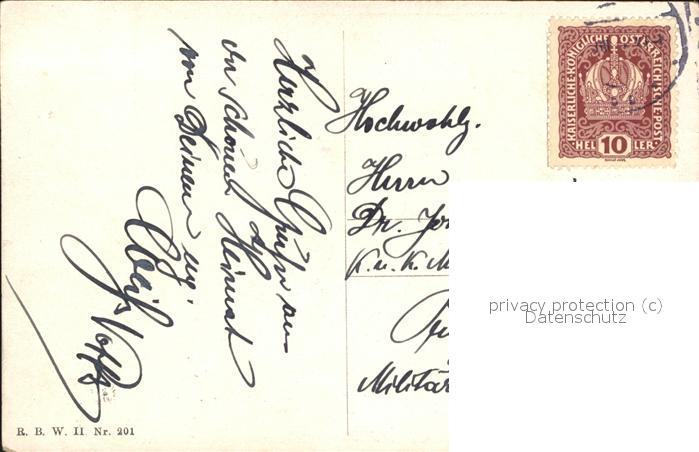 Herzliche Grüße aus
der schönen Heimat
von Deinem
Hochwohlg.
Herrn
Dr. Jo
K. u. K. M
Militär
KAISERLICHE·KÖNIGLICHE ÖSTERREICHISCHE POST
HELLER
10
privacy protection (c)
Datenschutz
R. B. W. II. Nr. 201